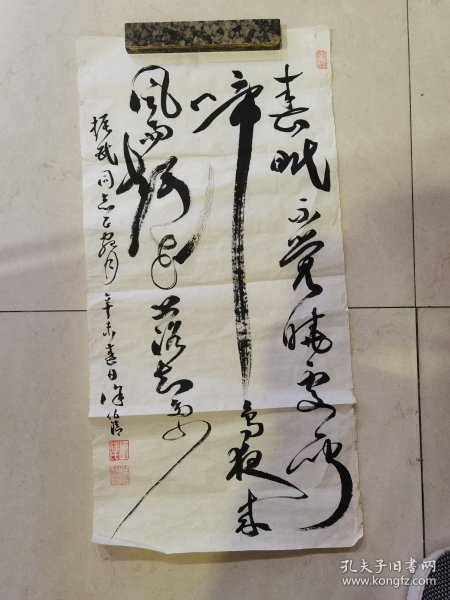 春眠不觉晓处处闻
啼鸟夜来
风雨声花落知多少
振武同志正腕 辛未春日
孔夫子旧书网
www.kongfz.com